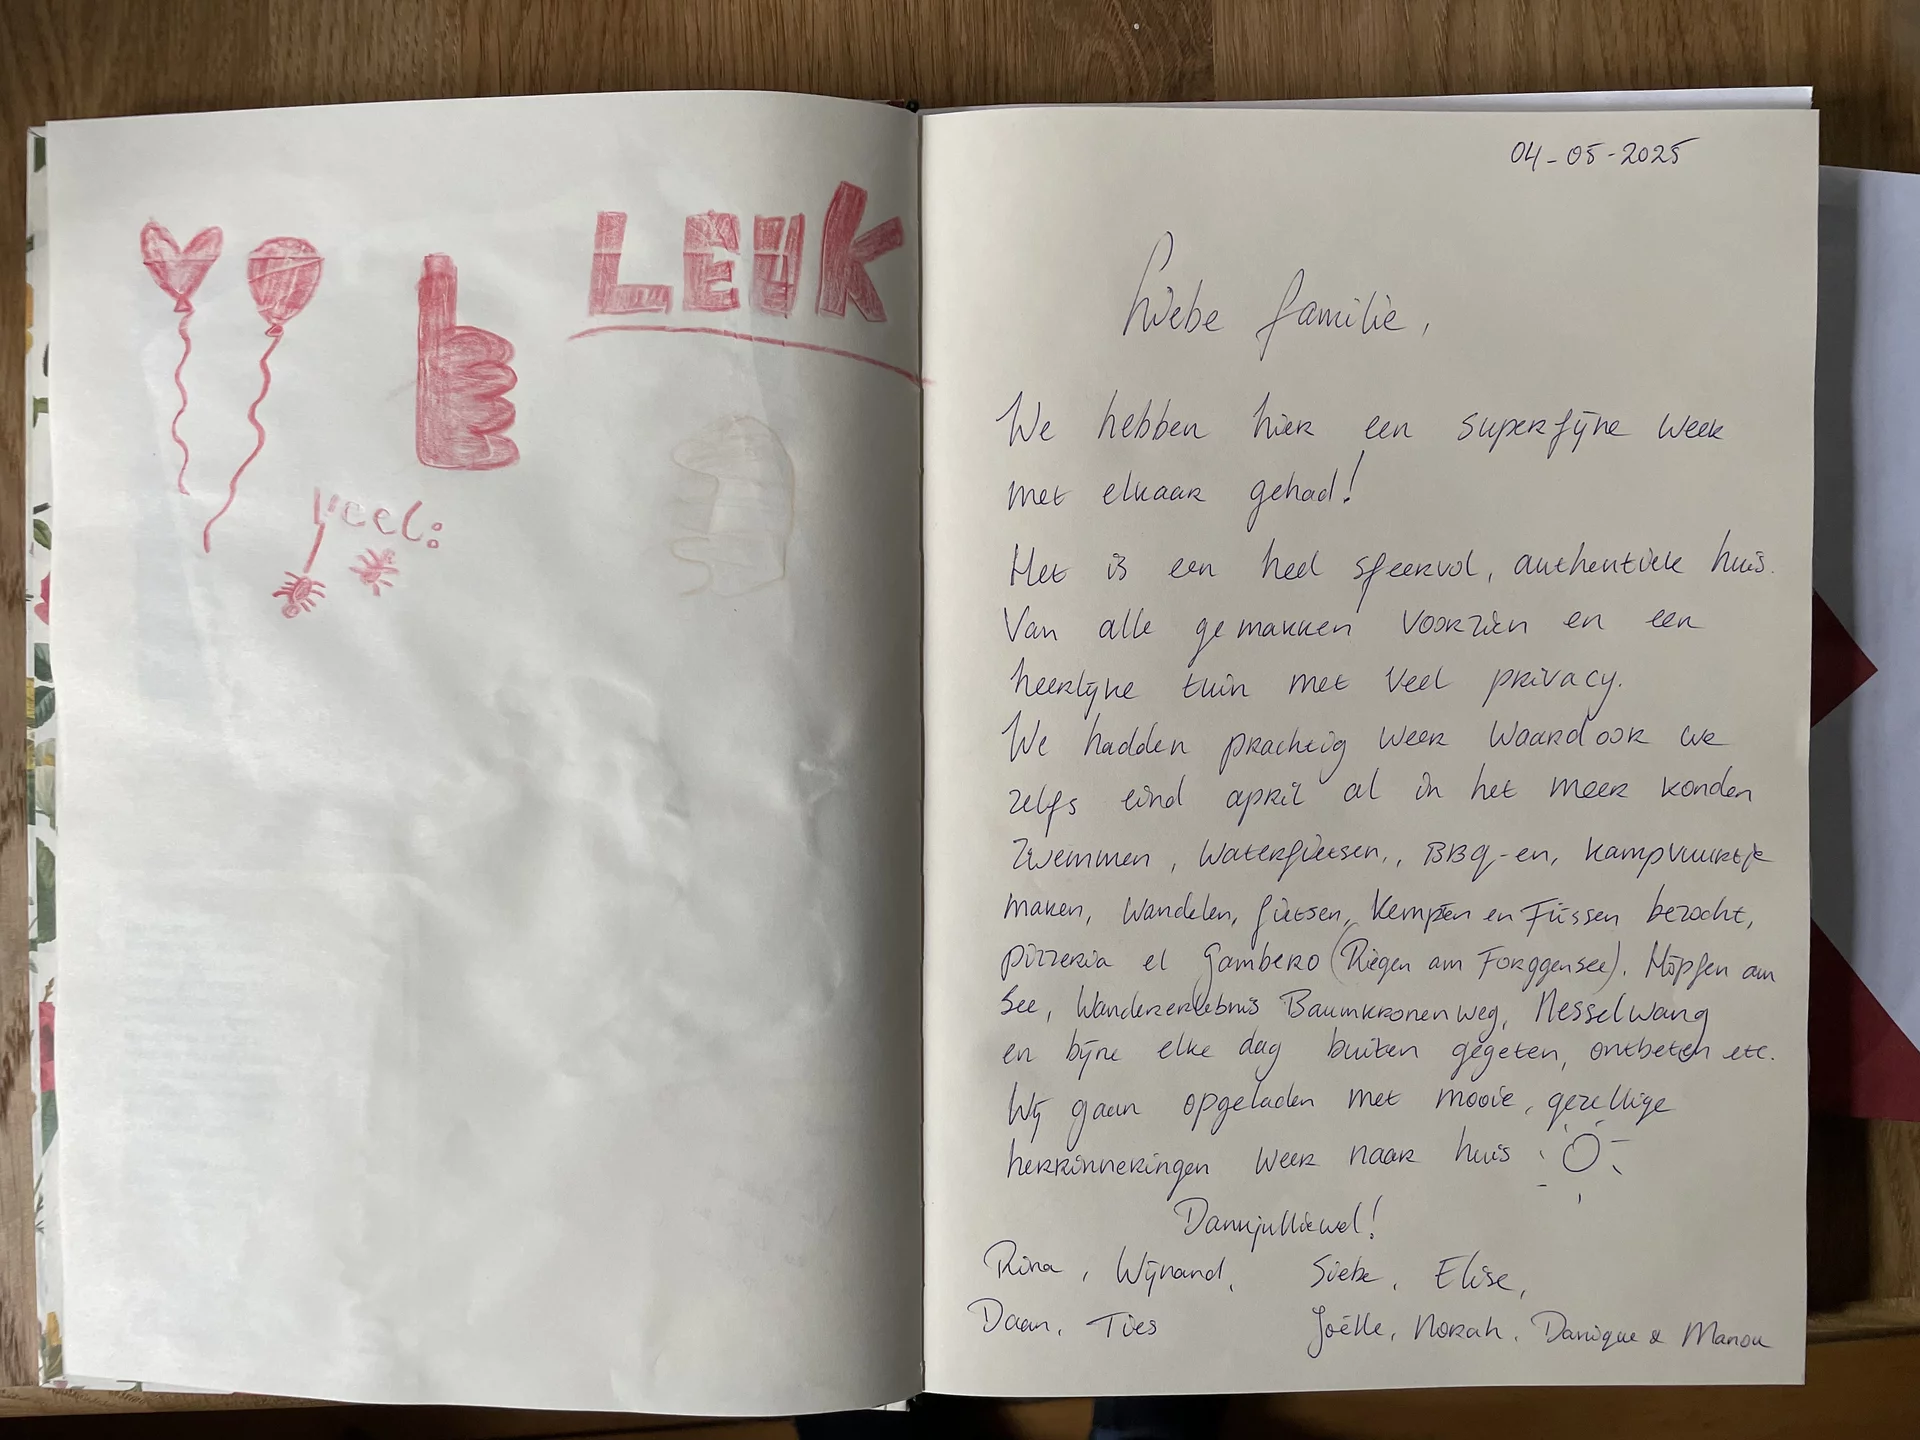 LEUK
Veel:
04-05-2025
Liebe familie,
We hebben hier een superfijne week
met elkaar gehad!
Het is een heel sfeervol, authentiek huis.
Van alle gemakken voorzien en een
heerlijke tuin met veel privacy.
We hadden prachtig weer waardoor we
zelfs eind april al in het meer konden
zwemmen, waterfietsen, BBQ-en, kampvuurtje
maken, wandelen, fietsen, Kempten en Füssen bezocht,
pizzeria el Gambero (Riegen am Forggensee). Hopfen am
See, Wandererlebnis Baumkronenweg, Nesselwang
en bijne elke dag buiten gegeten, ontbeten etc.
Wij gaan opgeladen met mooie, gezellige
herrinneringen weer naar huis
Dankjulliewel!
Rina, Wijnand, Siebe, Elise,
Daan, Ties Joëlle, Norah, Danique & Manou